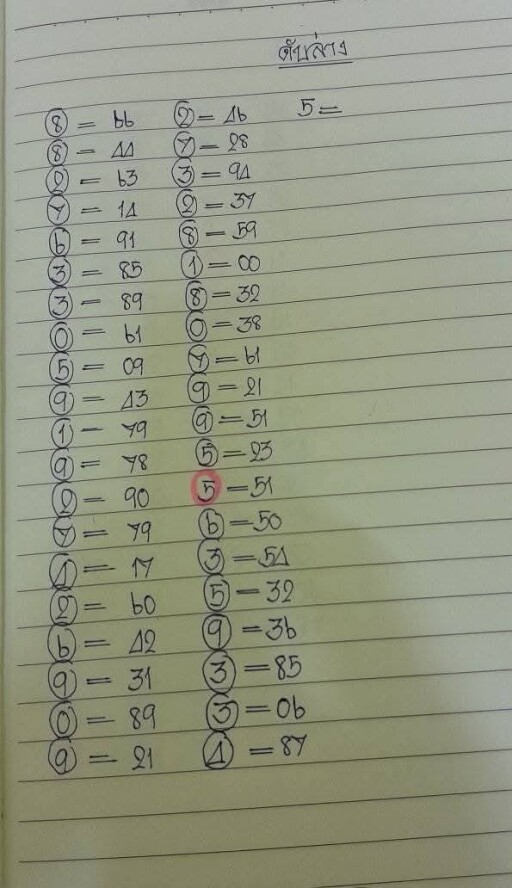 ดับล่าง
8 = 66 2 = 46 5 =
8 = 44 7 = 28
2 = 63 3 = 94
7 = 14 2 = 37
6 = 91 8 = 59
3 = 85 1 = 00
3 - 89 8 = 32
0 = 61 0 = 38
5 = 09 7 = 61
9 = 43 9 = 21
1 - 79 9 = 51
9 = 78 5 = 23
2 = 90 5 = 51
7 = 79 6 = 50
4 = 17 3 = 54
2 = 60 5 = 32
6 = 42 9 = 36
9 = 31 3 = 85
0 = 89 3 = 06
9 = 21 4 = 87